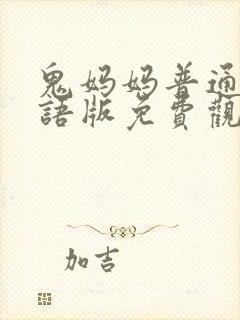 鬼妈妈普通
語版免費觀
加吉